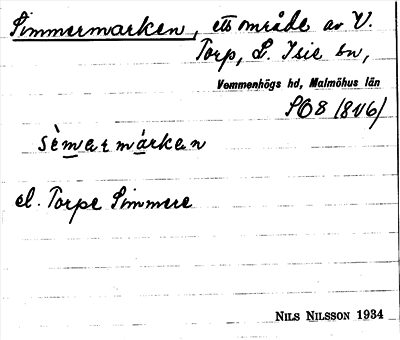 Simmermarken, ett område av V.
Torp, L. Isie sn,
Vemmenhögs hd, Malmöhus län
SO8 (8V6)
sèmarmárkan
el. Torpe Simmere
NILS NILSSON 1934